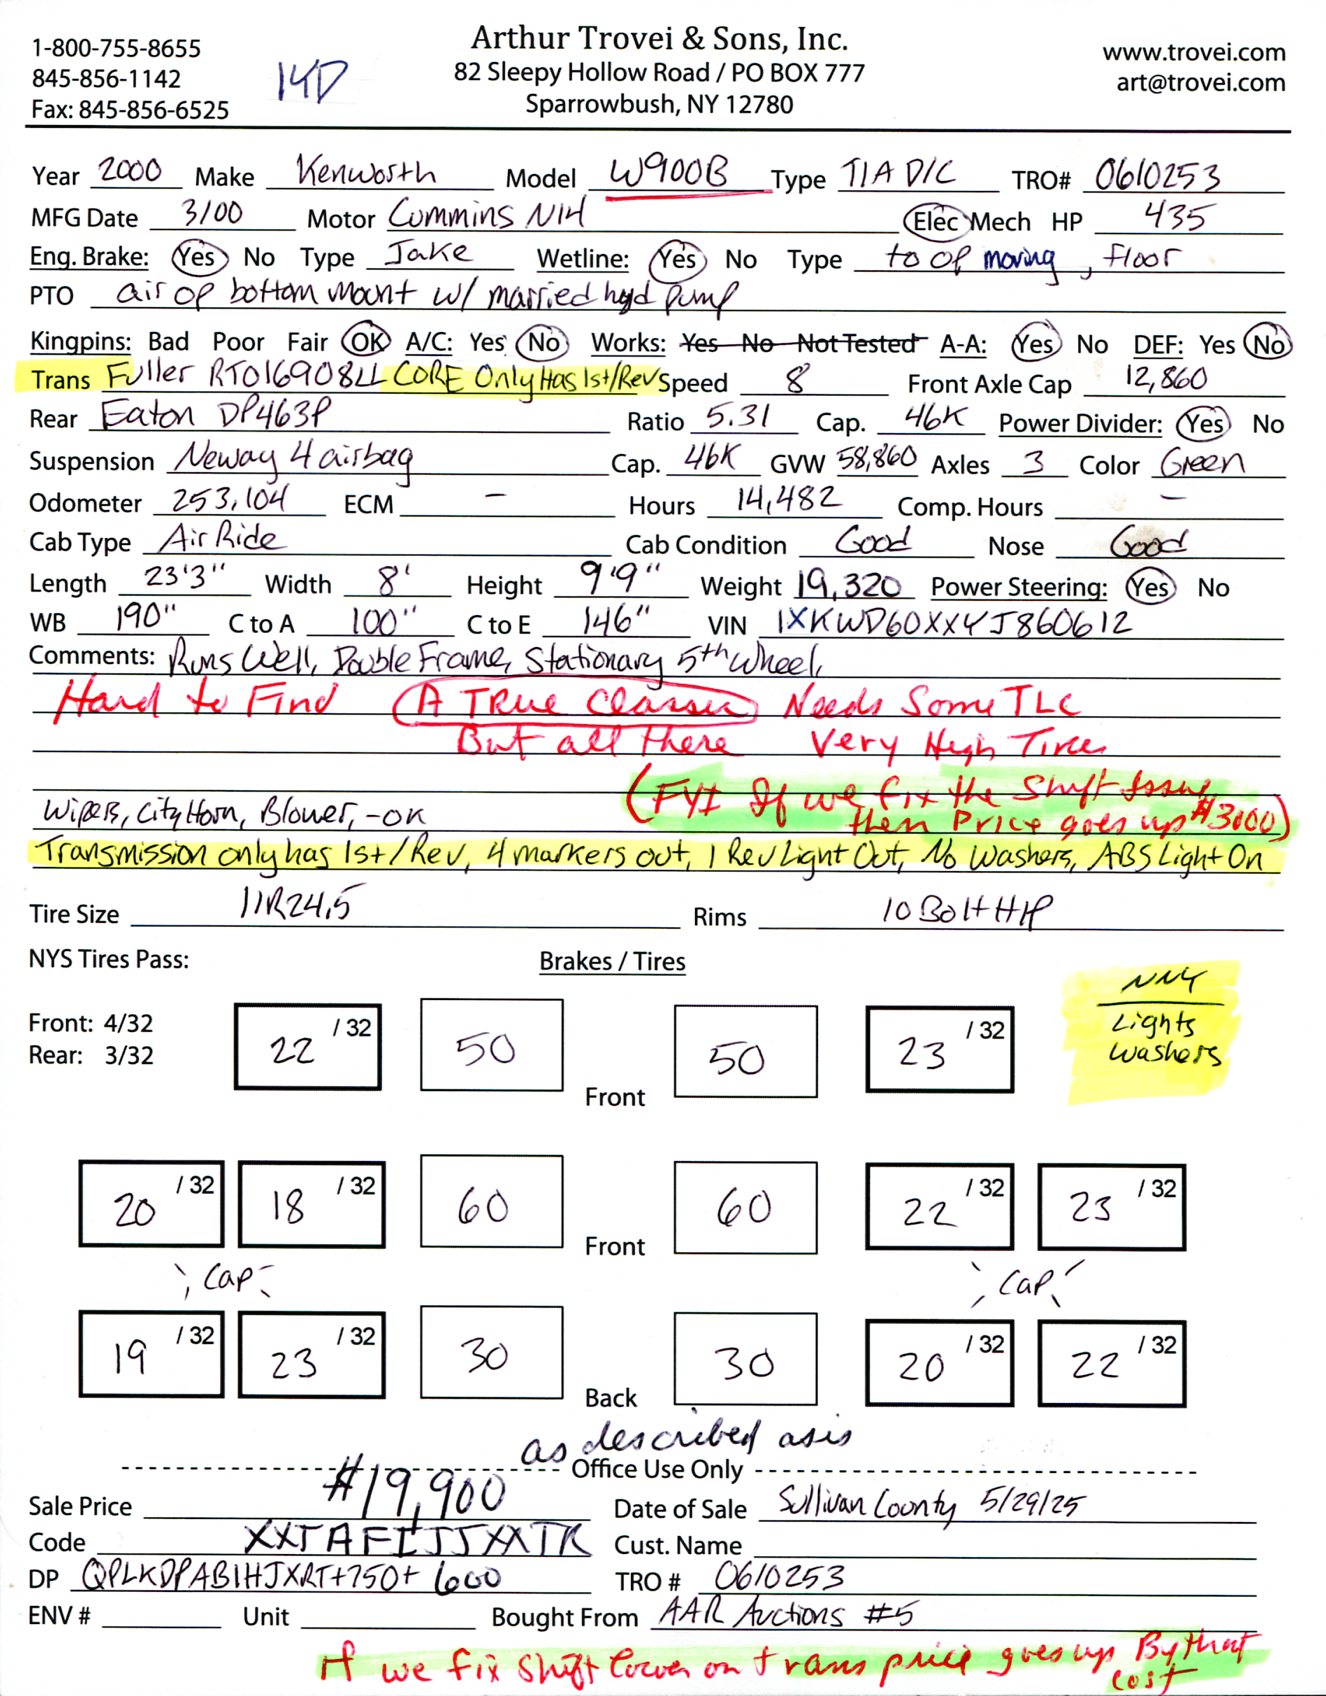 1-800-755-8655
845-856-1142
Fax: 845-856-6525
14D
Arthur Trovei & Sons, Inc.
82 Sleepy Hollow Road / PO BOX 777
Sparrowbush, NY 12780
www.trovei.com
art@trovei.com
Year 2000 Make Kenworth Model W900B Type T/A D/C TRO# 0610253
MFG Date 3/00 Motor Cummins N14 Elec Mech HP 435
Eng. Brake: Yes No Type Jake Wetline: Yes No Type to op moving, floor
PTO air op bottom mount w/ married hyd pump
Kingpins: Bad Poor Fair OK A/C: Yes No Works: Yes No Not Tested A-A: Yes No DEF: Yes No
Trans Fuller RTO16908LL CORE Only Has 1st/Rev Speed 8 Front Axle Cap 12,860
Rear Eaton DP463P Ratio 5.31 Cap. 46K Power Divider: Yes No
Suspension Neway 4 airbag Cap. 46K GVW 58,860 Axles 3 Color Green
Odometer 253,104 ECM - Hours 14,482 Comp. Hours -
Cab Type Air Ride Cab Condition Good Nose Good
Length 23'3" Width 8' Height 9'9" Weight 19,320 Power Steering: Yes No
WB 190" C to A 100" C to E 146" VIN 1XKWD60XXYJ860612
Comments: Runs Well, Double Frame, Stationary 5th Wheel,
Hard to Find A TRue Classic Needs Some TLC
But all there Very High Tires
(FYI If we fix the Shift Issue
then Price goes up $3000)
Wipers, City Horn, Blower, -OK
Transmission only has 1st/Rev, 4 markers out, 1 Rev Light Out, No Washers, ABS Light On
Tire Size 11R24.5 Rims 10 Bolt HP
NYS Tires Pass: Brakes / Tires
NNY
Lights
Washers
Front: 4/32
Rear: 3/32
22 /32 50 Front 50 23 /32
20 /32 18 /32 60 Front 60 22 /32 23 /32
Cap Cap
19 /32 23 /32 30 Back 30 20 /32 22 /32
as described as is
Office Use Only
Sale Price $19,900 Date of Sale Sullivan County 5/29/25
Code XXTAFIJJXXTR Cust. Name
DP QPLKDPABIHJXRT+750+ 600 TRO # 0610253
ENV # Unit Bought From AAR Auctions #5
If we fix shift tower on trans price goes up By that
cost